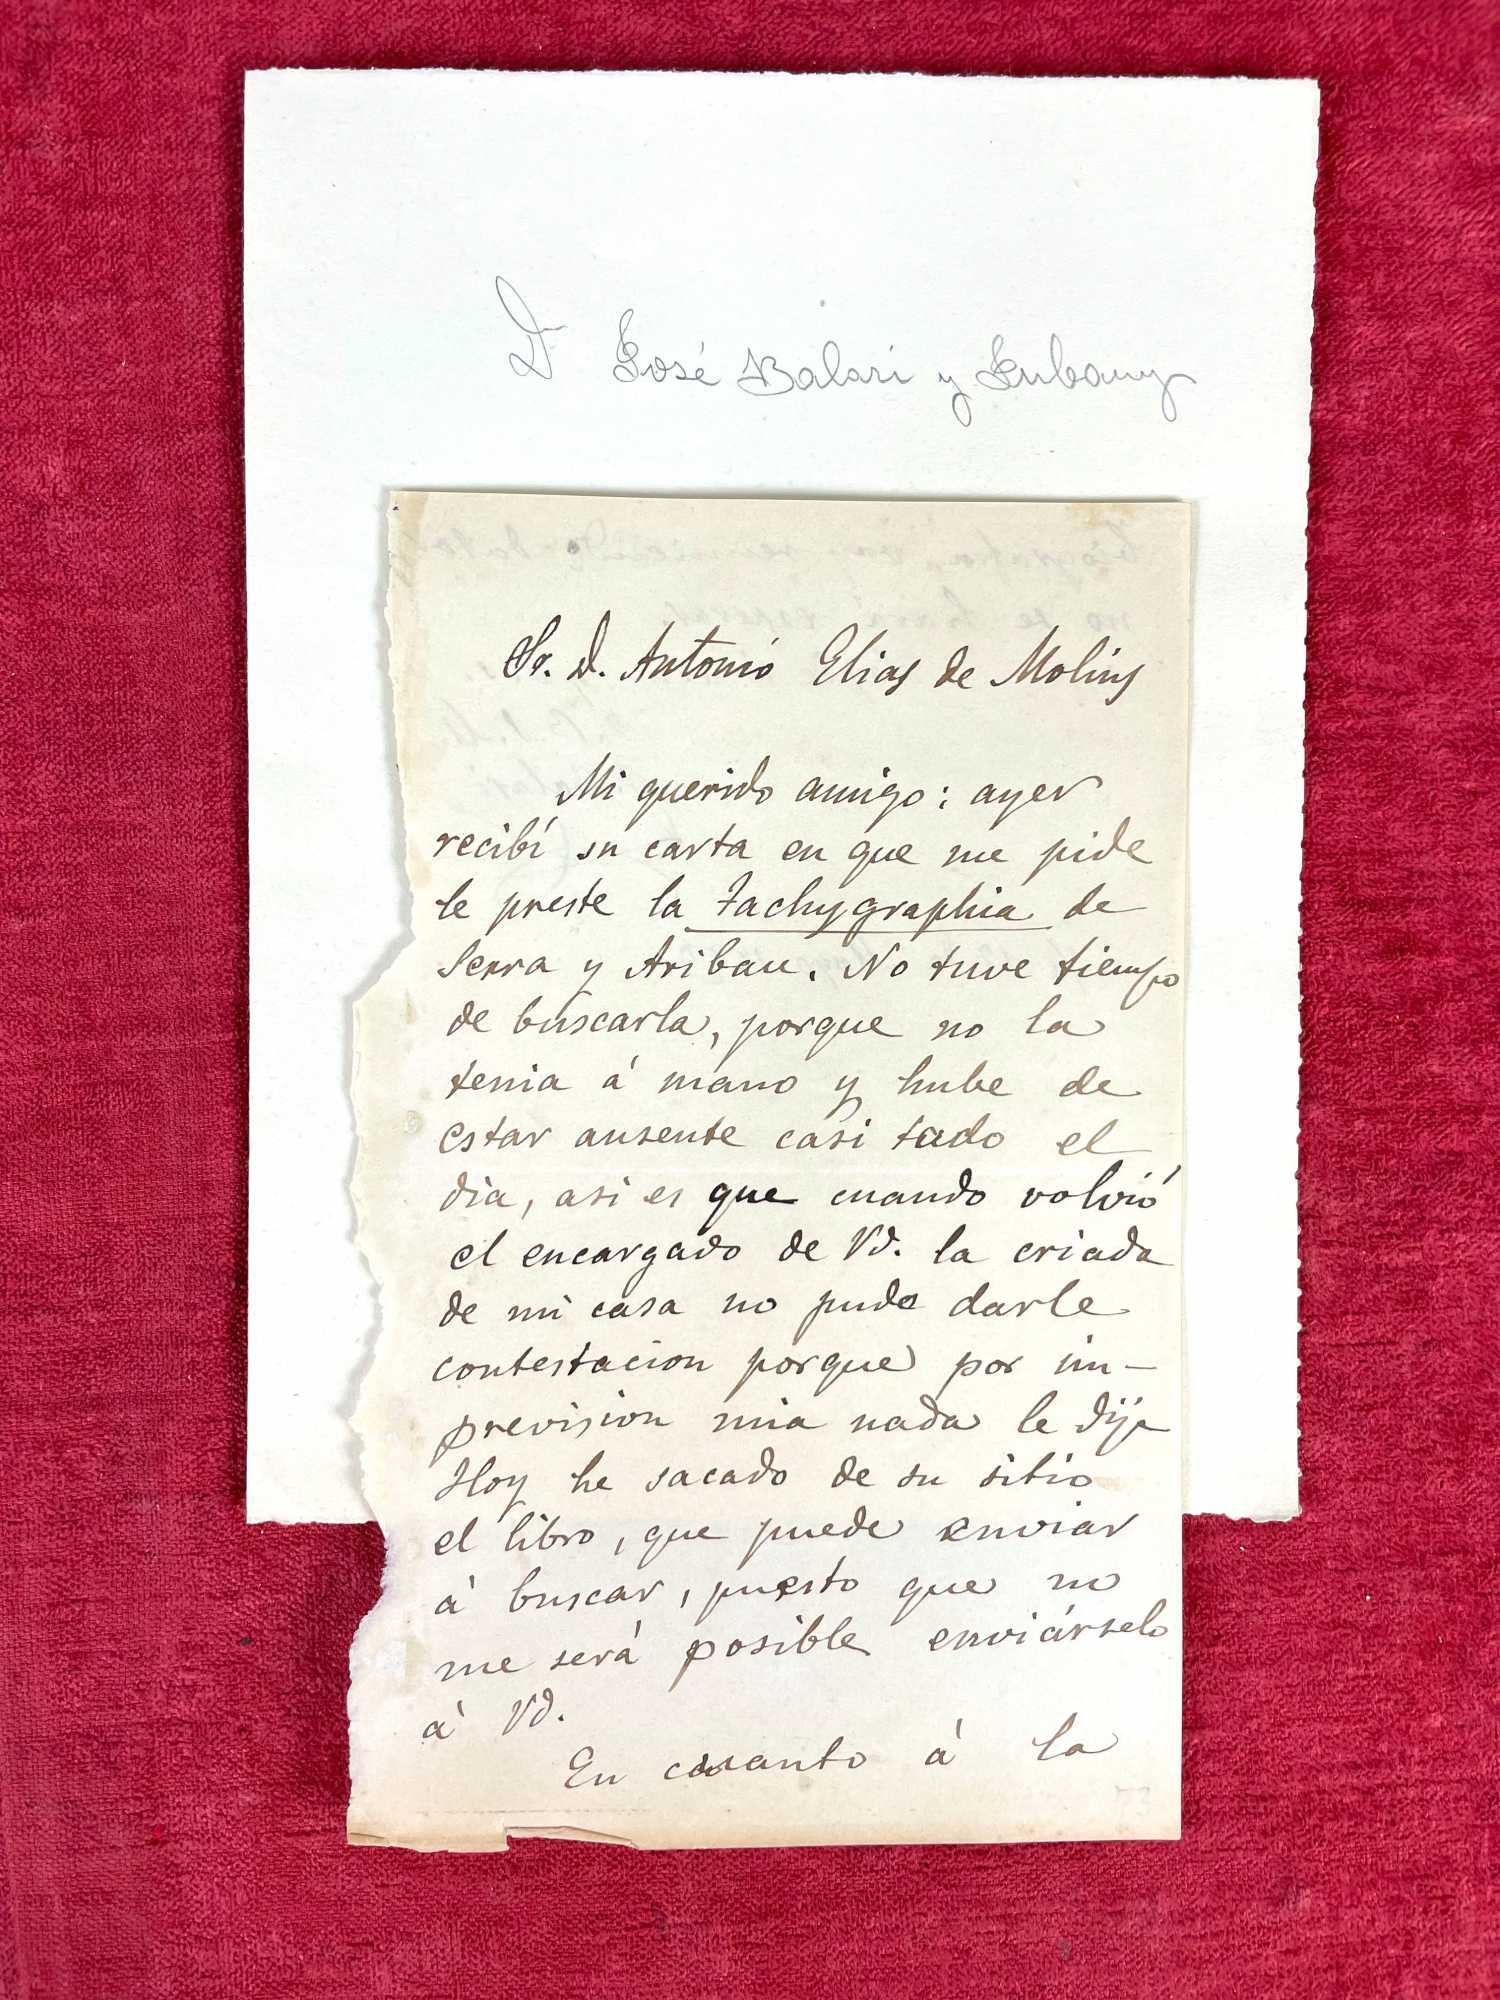 Dn José Balari y Jubany
Sr. D. Antonio Elias de Molins
Mi querido amigo: ayer
recibí su carta en que me pide
le preste la Tachygraphia de
Serra y Aribau. No tuve tiempo
de buscarla, porque no la
tenia á mano y hube de
estar ausente casi todo el
dia, asi es que cuando volvió
el encargado de Vd. la criada
de mi casa no pudo darle
contestacion porque por im-
prevision mia nada le dije
Hoy he sacado de su sitio
el libro, que puede enviar
á buscar, puesto que no
me será posible enviárselo
á Vd.
En cuanto á la